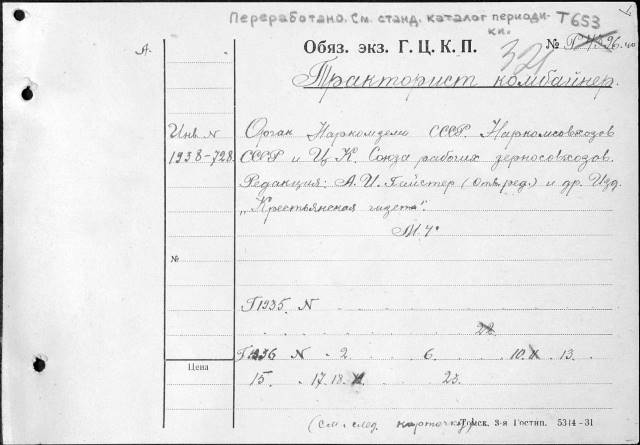 Переработано. См. станд. каталог периоди-
ки.
Т653
А.
Обяз. экз. Г. Ц. К. П.
№
321
Тракторист комбайнер.
Инв. N
1938-728.
Орган Наркомзема СССР. Наркомсовхозов
СССР и Ц. К. Союза рабочих зерносовхозов.
Редакция: А. И. Гайстер (отв. ред.) и др. Изд.
„Крестьянская газета".
М. 4°
№
Г 1935. N
22
Г 1936 N 2 6 10. 13.
Цена
15. 17. 18. 23.
(См. след. карточку)
Томск, 3-я Гостип. 5314-31